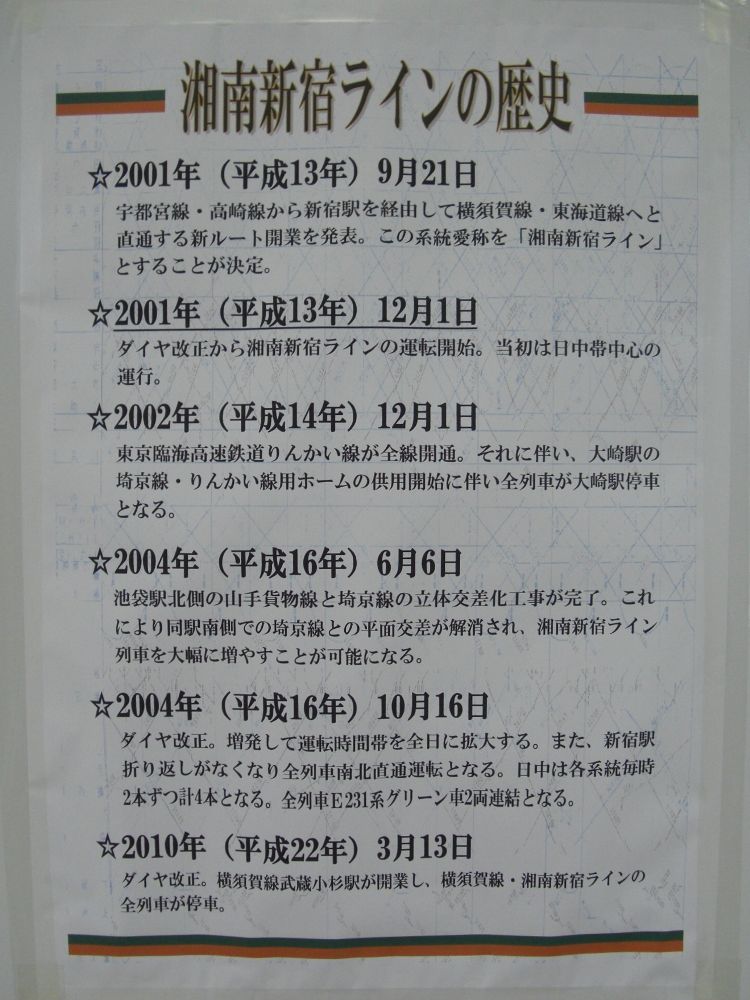 湘南新宿ラインの歴史
☆2001年（平成13年）9月21日
宇都宮線・高崎線から新宿駅を経由して横須賀線・東海道線へと
直通する新ルート開業を発表。この系統愛称を「湘南新宿ライン」
とすることが決定。
☆2001年（平成13年）12月1日
ダイヤ改正から湘南新宿ラインの運転開始。当初は日中帯中心の
運行。
☆2002年（平成14年）12月1日
東京臨海高速鉄道りんかい線が全線開通。それに伴い、大崎駅の
埼京線・りんかい線用ホームの供用開始に伴い全列車が大崎駅停車
となる。
☆2004年（平成16年）6月6日
池袋駅北側の山手貨物線と埼京線の立体交差化工事が完了。これ
により同駅南側での埼京線との平面交差が解消され、湘南新宿ライン
列車を大幅に増やすことが可能になる。
☆2004年（平成16年）10月16日
ダイヤ改正。増発して運転時間帯を全日に拡大する。また、新宿駅
折り返しがなくなり全列車南北直通運転となる。日中は各系統毎時
2本ずつ計4本となる。全列車E231系グリーン車2両連結となる。
☆2010年（平成22年）3月13日
ダイヤ改正。横須賀線武蔵小杉駅が開業し、横須賀線・湘南新宿ラインの
全列車が停車。